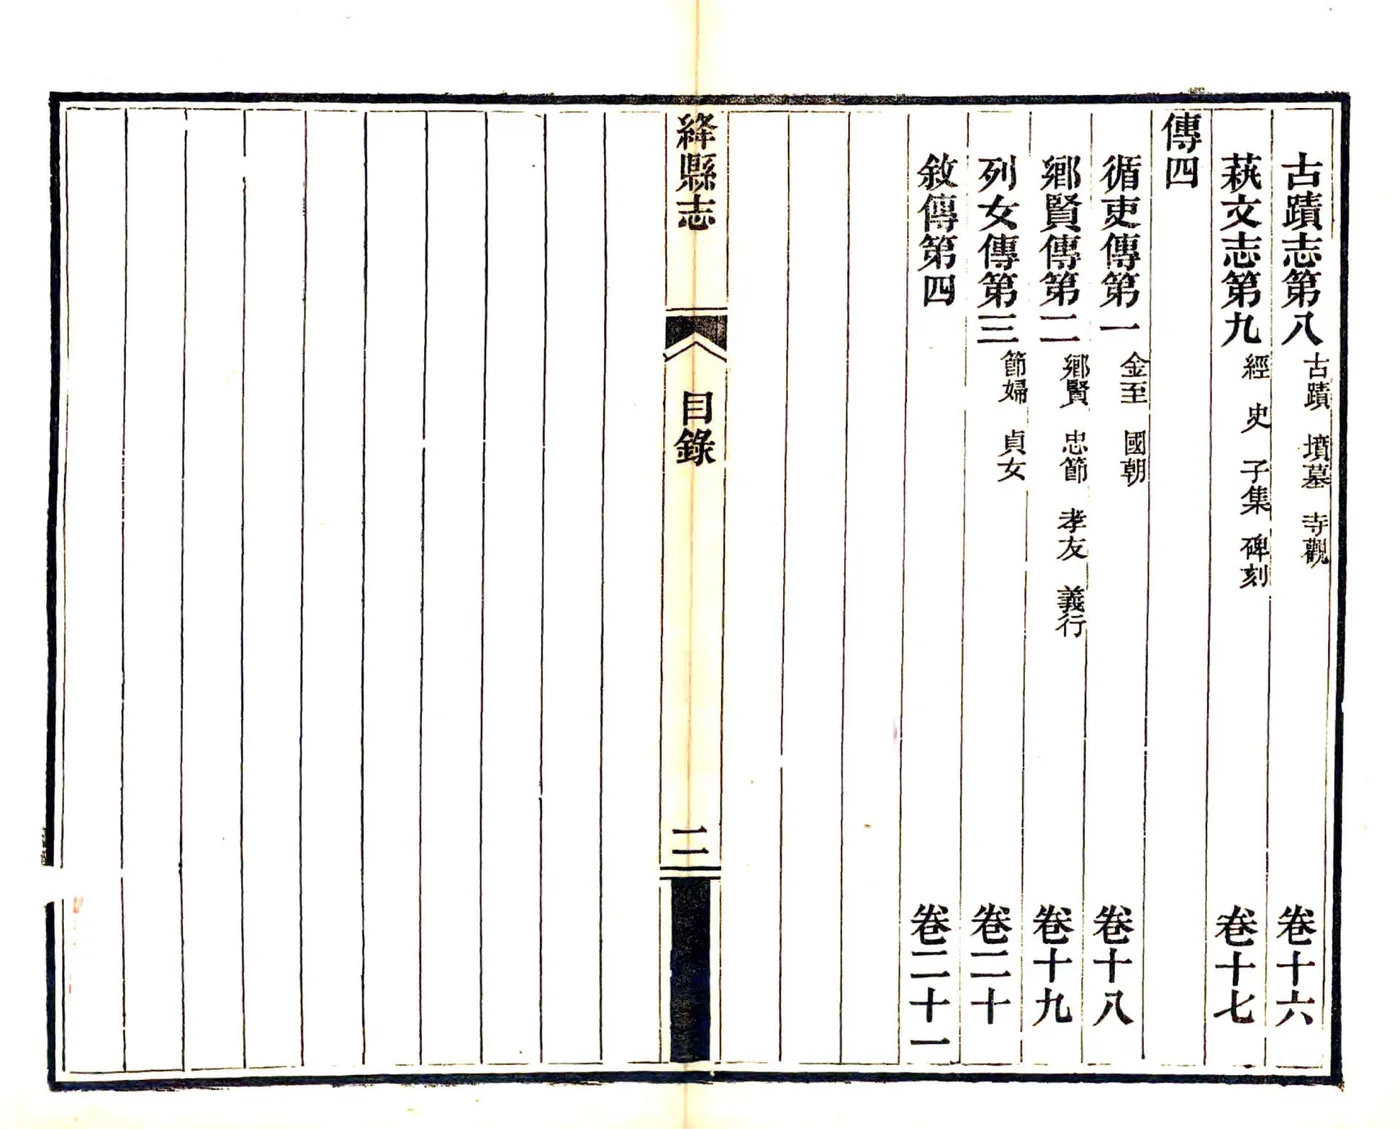 古蹟志第八 古蹟 墳墓 寺觀 卷十六
蓺文志第九 經 史 子集 碑刻 卷十七
傳四
循吏傳第一 金至 國朝 卷十八
鄉賢傳第二 鄉賢 忠節 孝友 義行 卷十九
列女傳第三 節婦 貞女 卷二十
敘傳第四 卷二十一
絳縣志 目錄 二